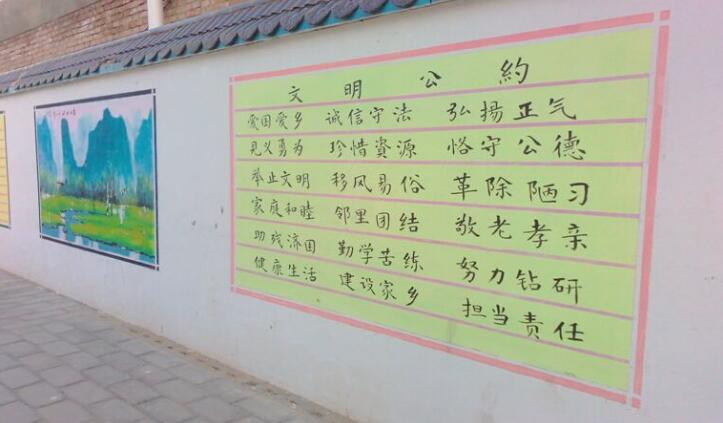 文明公約
爱国爱乡 诚信守法 弘揚正气
见义勇为 珍惜資源 恪守公德
举止文明 移风易俗 革除陋习
家庭和睦 邻里团结 敬老孝亲
助残济困 勤学苦练 努力钻研
健康生活 建设家乡 担当责任